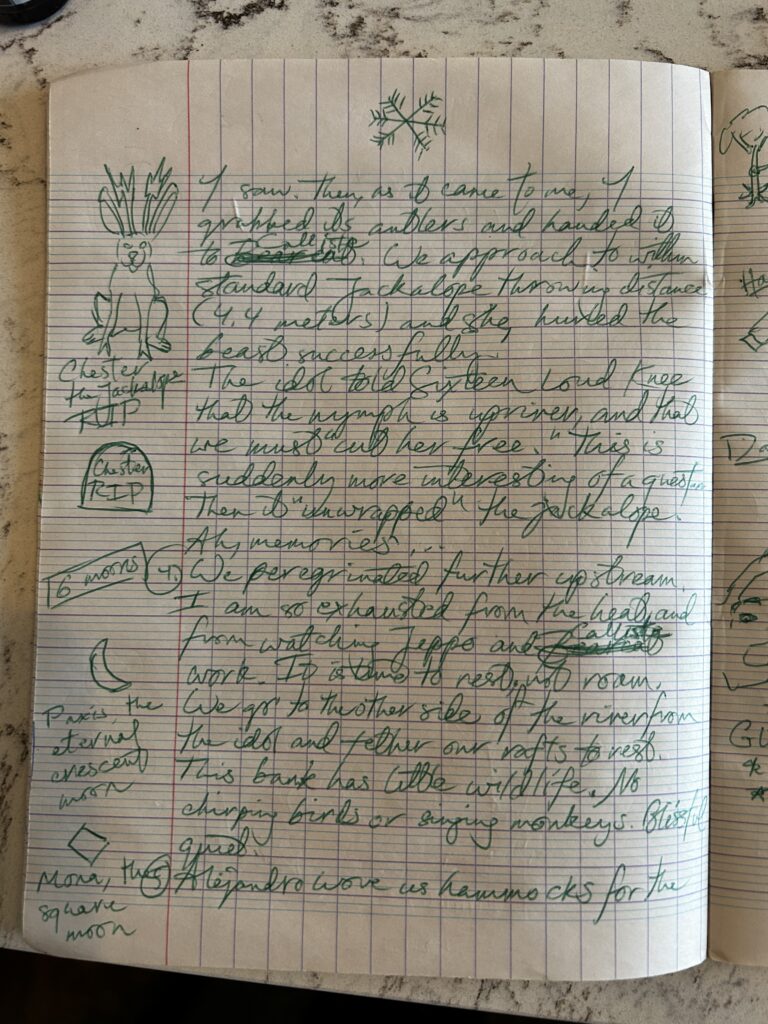 I saw. Then, as it came to me, I
grabbed its antlers and handed it
to Callisto. We approach to within
standard Jackalope throwing distance
(4.4 meters) and she, hurled the
beast successfully.
The idol told Sixteen Loud Knee
that the nymph is upriver, and that
we must "cut her free." This is
suddenly more interesting of a question
Then it "unwrapped" the jackalope.
Ah, memories...
4. We peregrinated further upstream.
I am so exhausted from the heat, and
from watching Jeppo and Callisto
work. It is time to rest, not roam.
We go to the other side of the river from
the idol and tether our rafts to rest.
This bank has little wildlife. No
chirping birds or singing monkeys. Blissful
quiet.
5 Alejandro wove us hammocks for the
Chester
the Jackalope
RIP
Chester
RIP
6 moons
Paxis, the
eternal
crescent
moon
Mona, the
square
moon